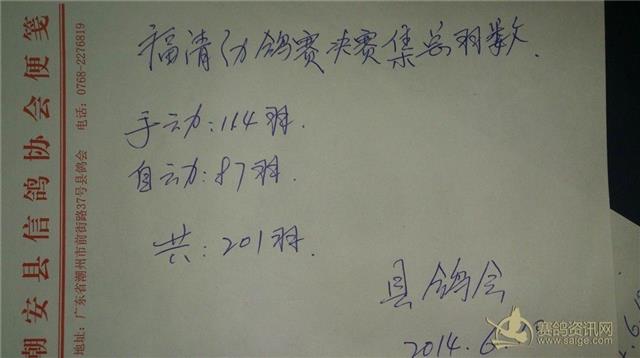 潮安县信鸽协会便笺
地址：广东省潮州市前街路37号县鸽会 电话：0768-2276819
福清 幼鸽赛决赛集总羽数.
手动：114羽.
自动：87羽.
共：201羽.
县鸽会
2014.6.
赛鸽资讯网
www.saige.com